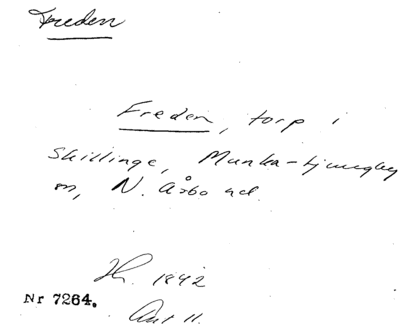 Freden
Freden, torp i
Skillinge, Munka-Ljungby
sn, N. Åsbo hd.
1842
Nr 7264.